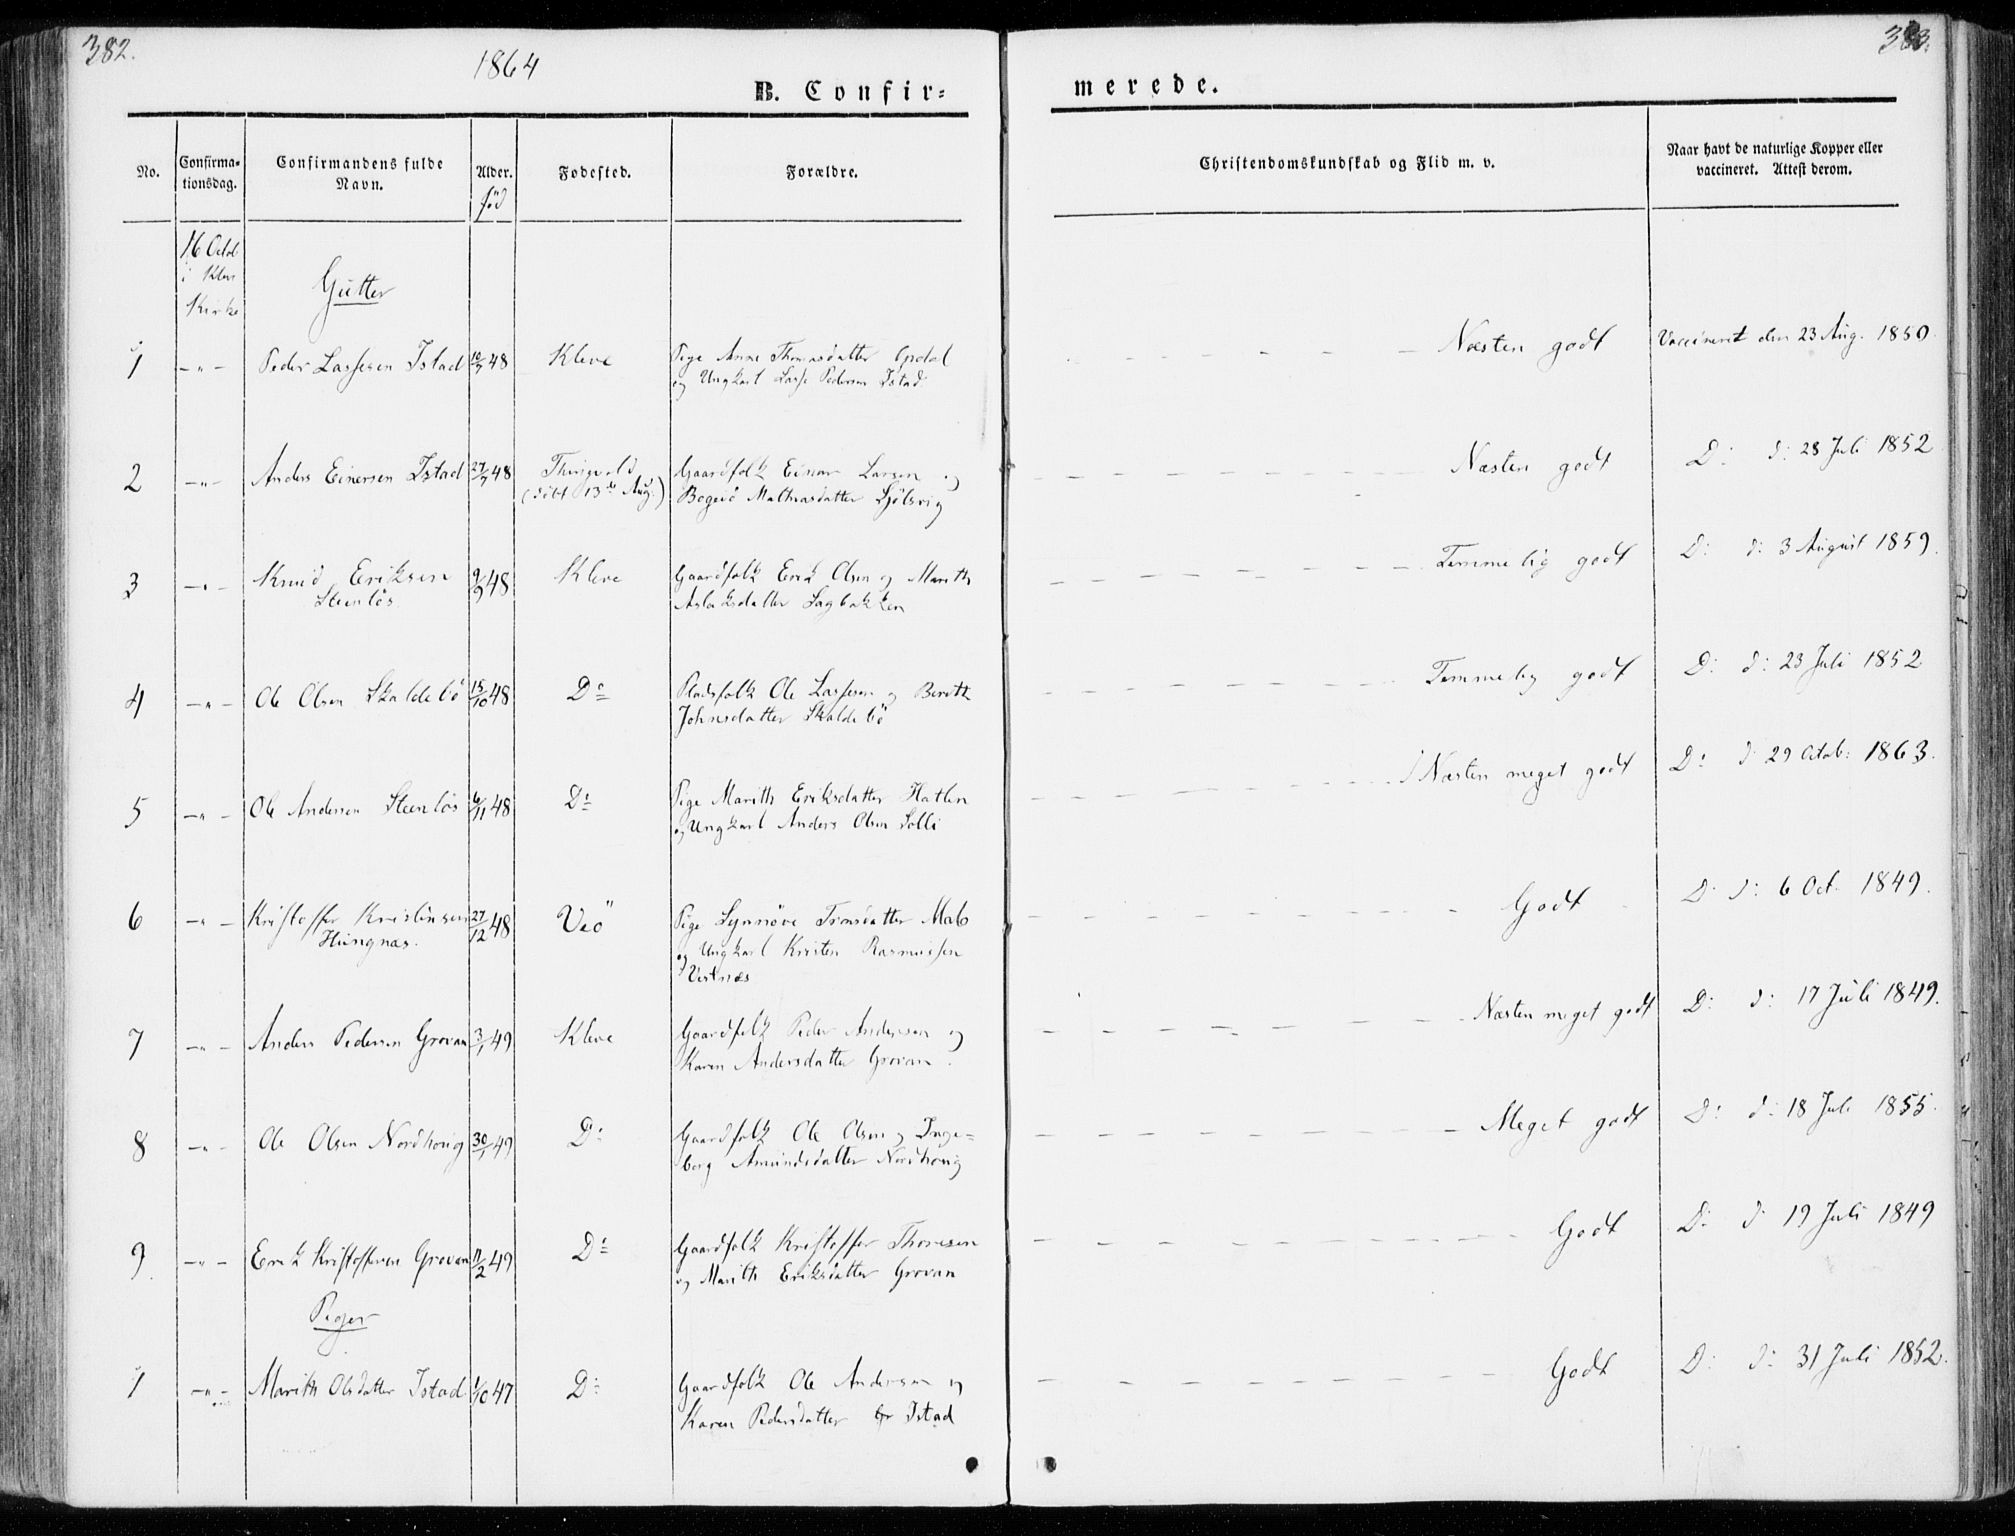 382.
1864
383.
B. Confir-
merede.
No.
Confirma-
tionsdag.
Confirmandens fulde
Navn.
Alder.
född
Fødested.
Forældre.
Christendomskundskab og Flid m. v.
Naar havt de naturlige Kopper eller
vaccineret. Attest derom.
16 Octob
i Kleve
Kirke
Gutter
1 -"- Peder Lassesen Istad 10/7 48 Kleve Pige Anne Thomasdatter Opdøl
og Ungkarl Lasse Pedersen Istad
Næsten godt Vaccineret den 23 Aug. 1850.
2 -"- Anders Einersen Istad 27/7 48 Thingvold Gaardfolk Einar Larsen og
(döbt 13de Aug.) Mathiasdatter
Næsten godt D: d: 28 Juli 1852
3 -"- Knud Eriksen 9/9 48 Kleve Gaardfolk Erik Olsen og Marith
Steenlös Aslaksdatter Sagbakken
Temmelig godt D: d: 3 August 1859.
4 -"- Ole Olsen Skaldebö 15/10 48 Do Pladsfolk Ole Lassesen og Berith
Johnsdatter Skaldebö
Temmelig godt D: d: 23 Juli 1852
5 -"- Ole Andersen Steenlös 6/11 48 Do Pige Marith Eriksdatter Hatlen
og Ungkarl Anders Olsen Solli
Næsten meget godt D: d: 29 Octob: 1863.
6 -"- Kristoffer Kristensen 27/12 48 Veö Pige Synnöve
Hungnæs. og Ungkarl Kristen Rasmussen
Vestnæs
Godt D: d: 6 Oct. 1849.
7 -"- Anders Pedersen Grovan 3/1 49 Kleve Gaardfolk Peder Andersen og
Karen Andersdatter Grovan.
Næsten meget godt D: d: 17 Juli 1849.
8 -"- Ole Olsen Nordhoug 30/1 49 Do Gaardfolk Ole Olsen og Inge-
borg Amundsdatter Nordhoug
Meget godt D: d: 18 Juli 1855.
9. -"- Erik Kristoffersen Grovan 11/2 49 Do Gaardfolk Kristoffer Thoresen
og Marith Eriksdatter Grovan
Godt D: d: 19 Juli 1849
Piger
1 -"- Marith Olsdatter Istad 1/10 47 Do Gaardfolk Ole Andersen og
Karen Pedersdatter Istad
Godt D: d: 31 Juli 1852.